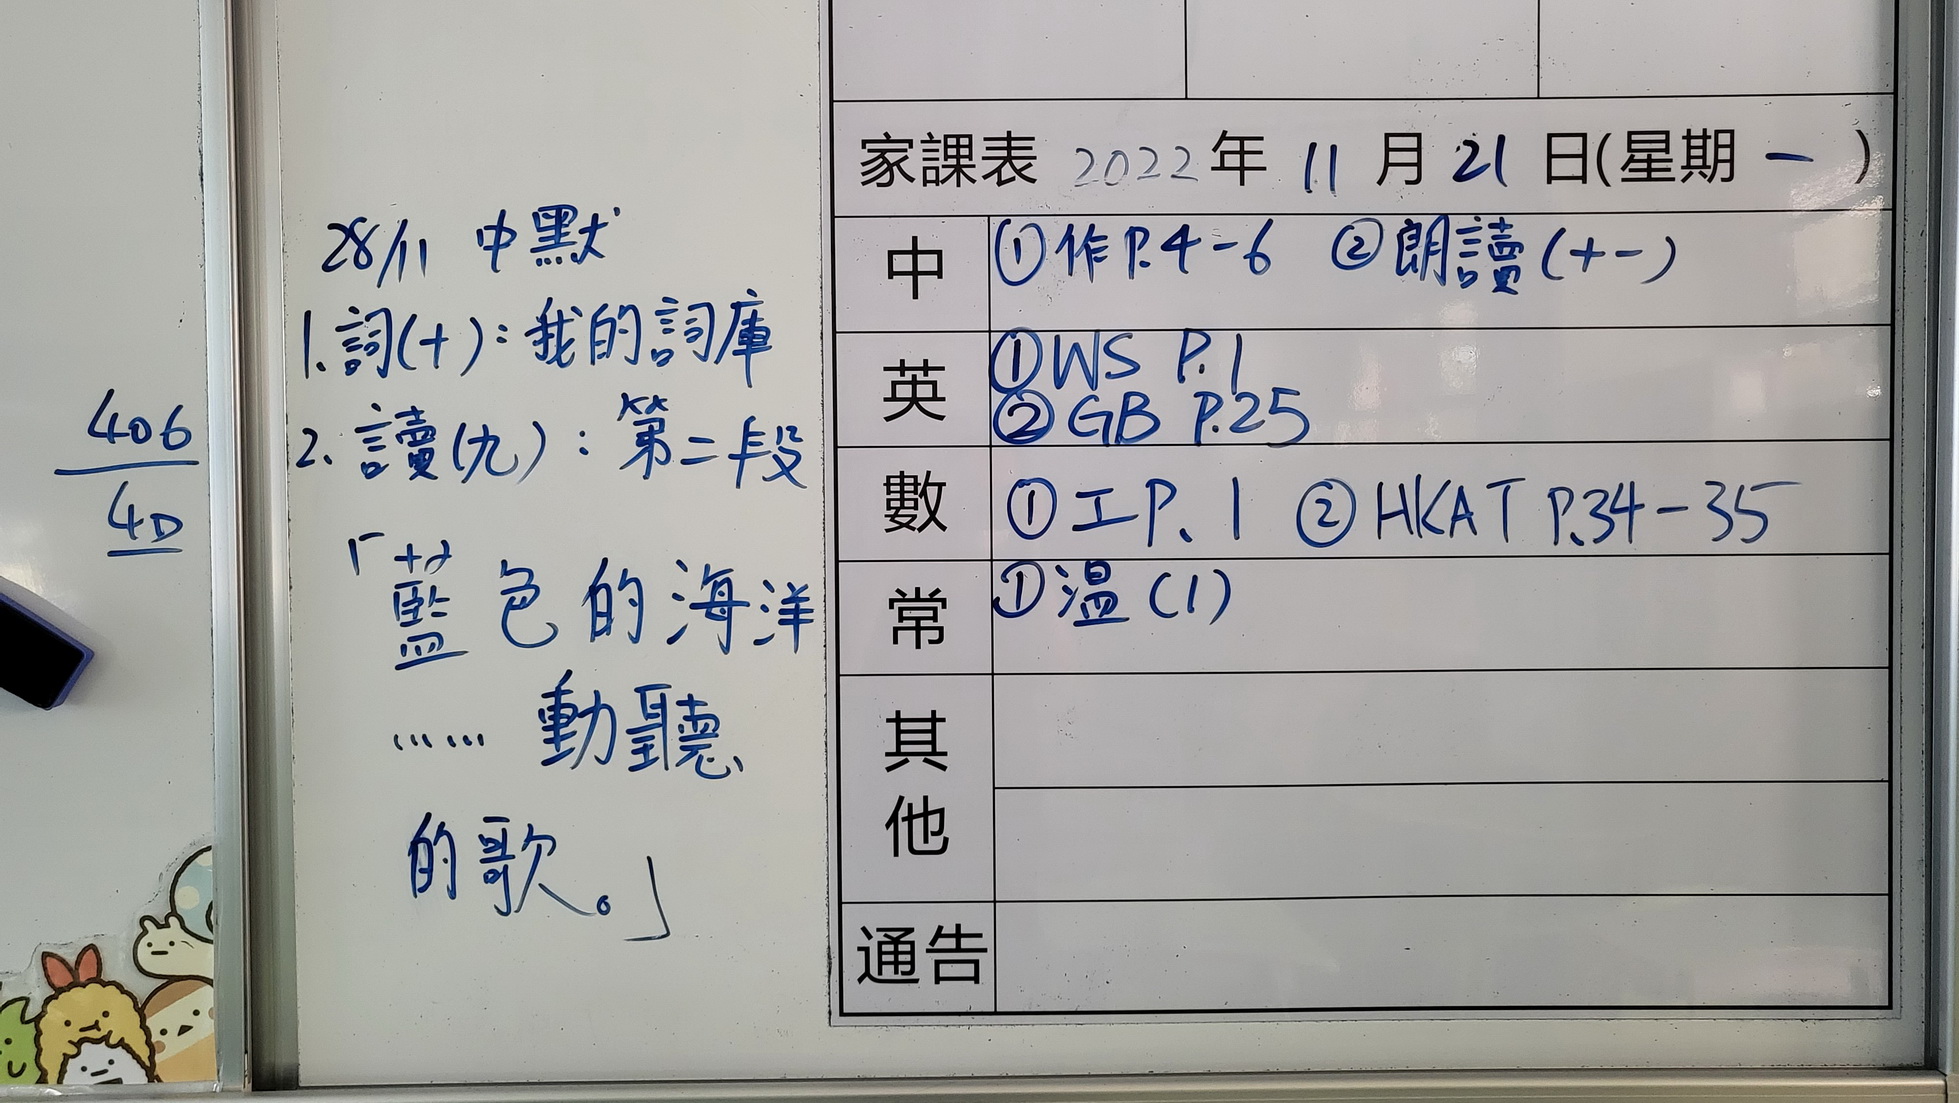 406
4D
28/11 中默
1.詞(十):我的詞庫
2.讀(九):第二段
「藍色的海洋
……動聽
的歌。」
家課表 2022年 11月21日(星期一)
中 ①作P.4-6 ②朗讀(十一)
英 ①WS P.1
②GB P.25
數 ①工P.1 ②HKAT P.34-35
常 ①溫(1)
其他
通告